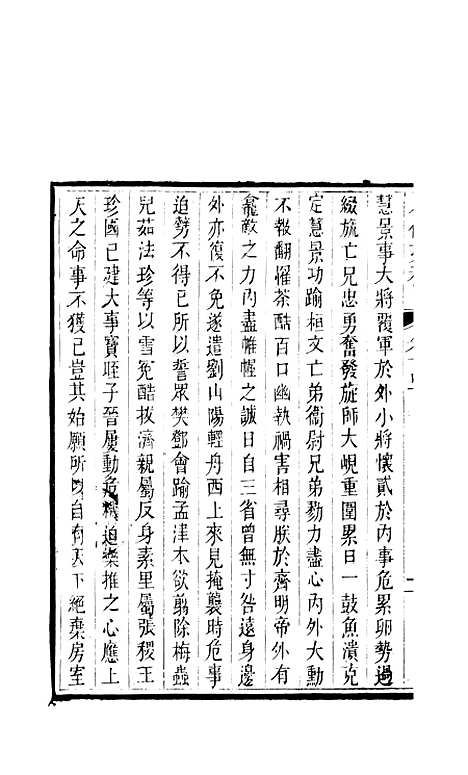 慧景事大將覆軍於外小將懷貳於内事危累卵勢過
綴旒亡兄忠勇奮發旋師大峴重圍累日一鼓魚潰克
定慧景功踰桓文亡弟衞尉兄弟勠力盡心内外大勳
不報翻罹荼酷百口幽執禍害相尋朕於齊明帝外有
龕敵之力内盡帷幄之誠日自三省曾無寸咎遠身邊
外亦復不免遂遣劉山陽輕舟西上來見掩襲時危事
迫勢不得已所以誓眾樊鄧會踰孟津本欲翦除梅蟲
兒茹法珍等以雪冤酷拔濟親屬反身素里屬張稷王
珍國已建大事寶晊子晉屢動危機迫樂推之心應上
天之命事不獲已豈其始願所以自有天下絕棄房室